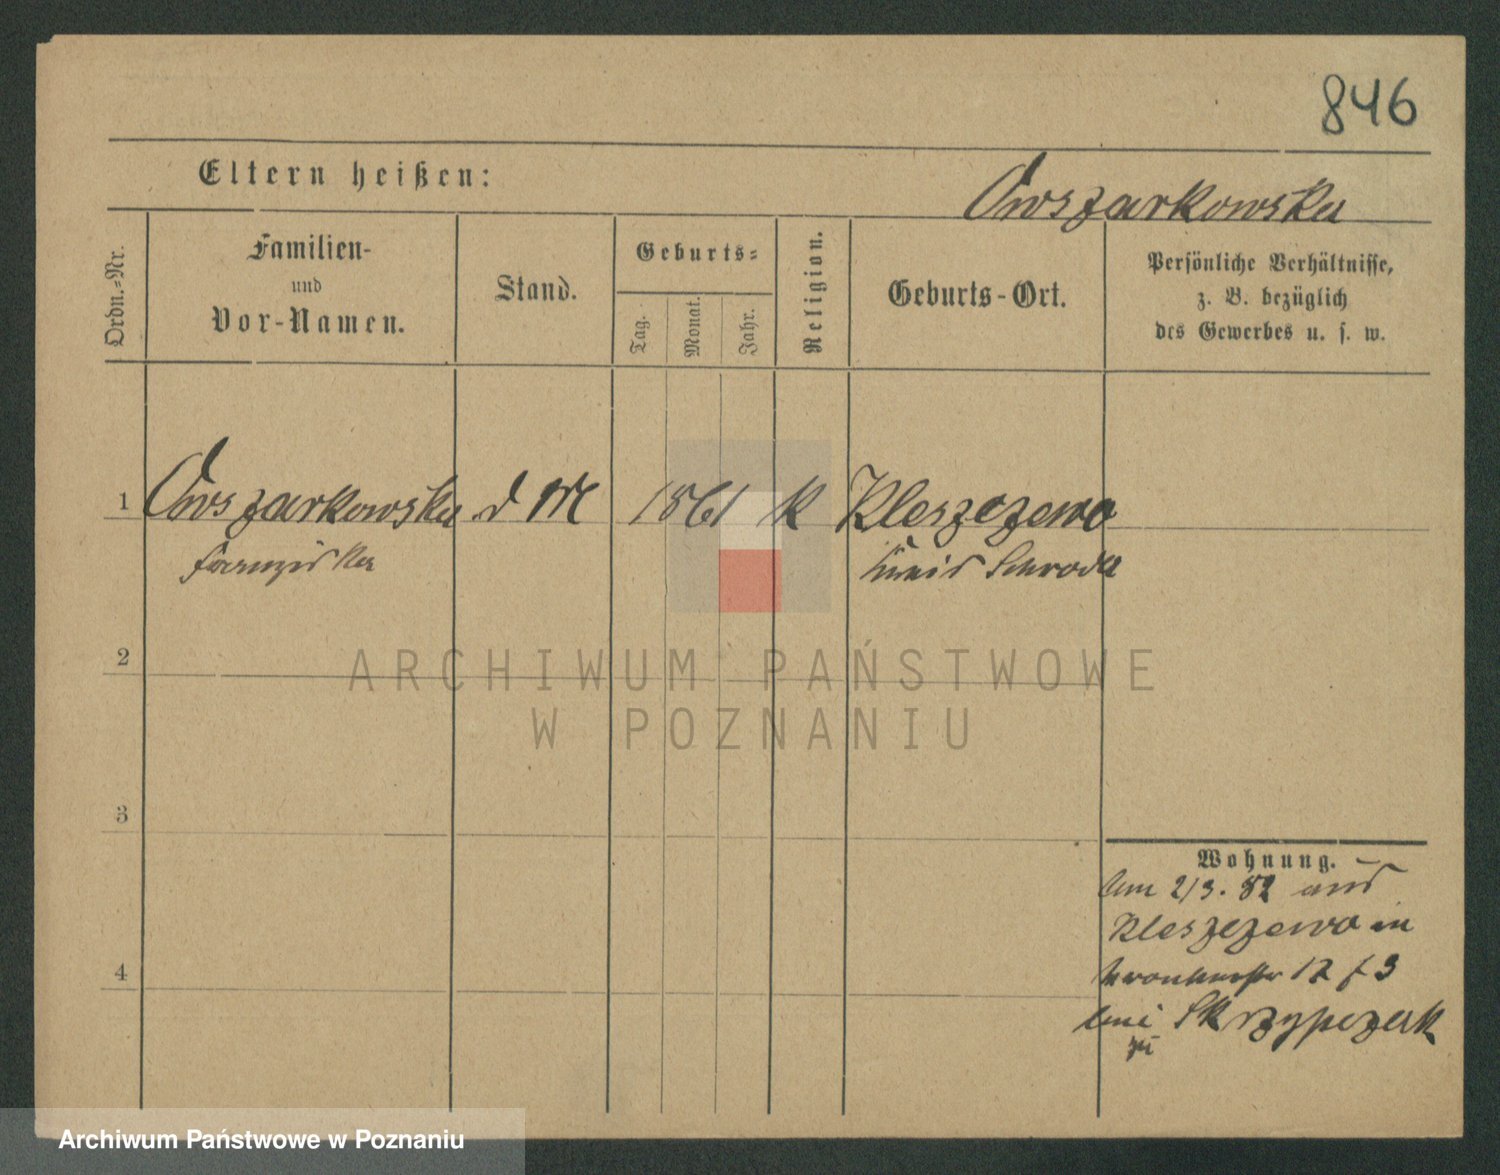 846
Eltern heißen:
Owszarkowska
Ordn.=Nr.
Familien-
und
Vor-Namen.
Stand.
Geburts=
Tag.
Monat.
Jahr.
Religion.
Geburts-Ort.
Persönliche Verhältnisse,
z. B. bezüglich
des Gewerbes u. s. w.
1
Owszarkowska
d M
1861
k
Kleszczewo
Franziska
Kreis Schroda
2
ARCHIWUM PAŃSTWOWE
W POZNANIU
3
Wohnung.
Am 2/3. 82 aus
Kleszczewo in
4
17
3
bei Skrzypczak
zu
Archiwum Państwowe w Poznaniu